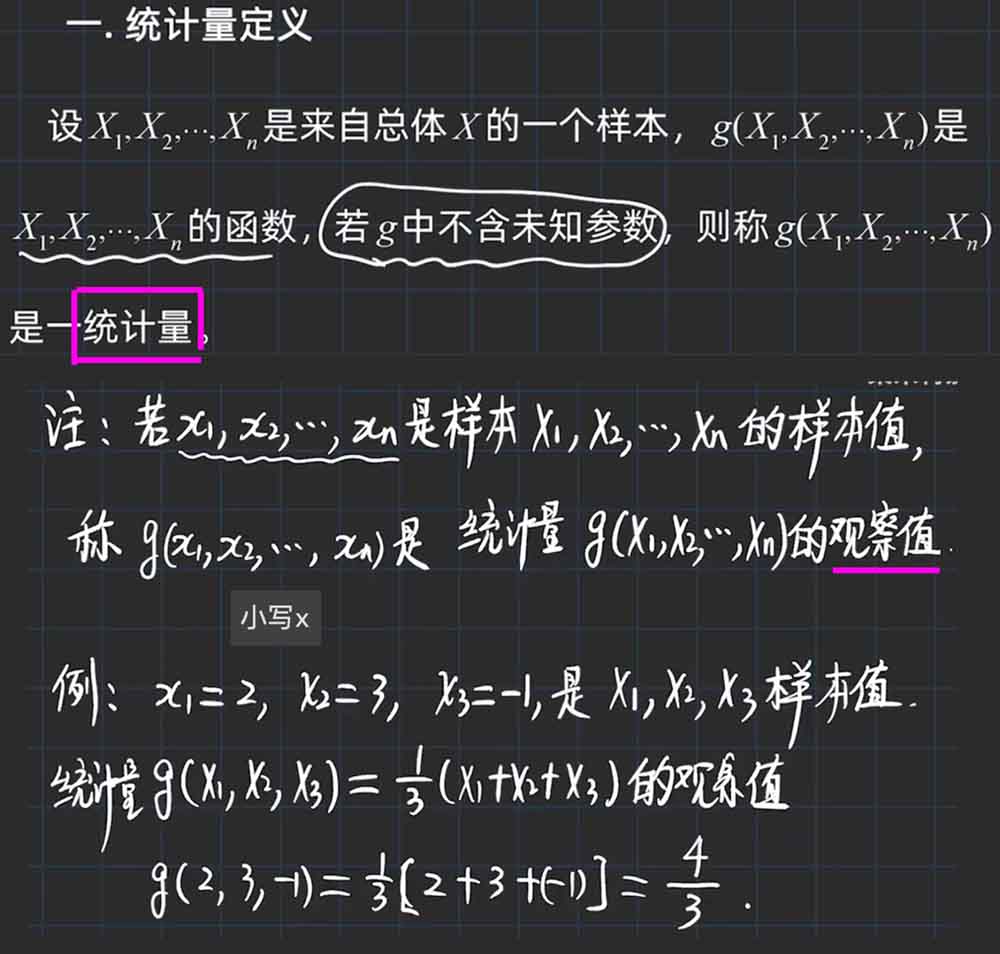 一. 统计量定义
设X₁,X₂,⋯,Xₙ是来自总体X的一个样本，g(X₁,X₂,⋯,Xₙ)是
X₁,X₂,⋯,Xₙ的函数，若g中不含未知参数，则称g(X₁,X₂,⋯,Xₙ)
是一统计量。
注：若x₁,x₂,⋯,xₙ是样本X₁,X₂,⋯,Xₙ的样本值，
称 g(x₁,x₂,⋯,xₙ)是 统计量 g(X₁,X₂,⋯,Xₙ)的观察值.
小写x
例：x₁=2, x₂=3, x₃=-1,是 X₁,X₂,X₃样本值.
统计量g(X₁,X₂,X₃)=1/3(X₁+X₂+X₃)的观察值
g(2,3,-1)=1/3[2+3+(-1)]=4/3.